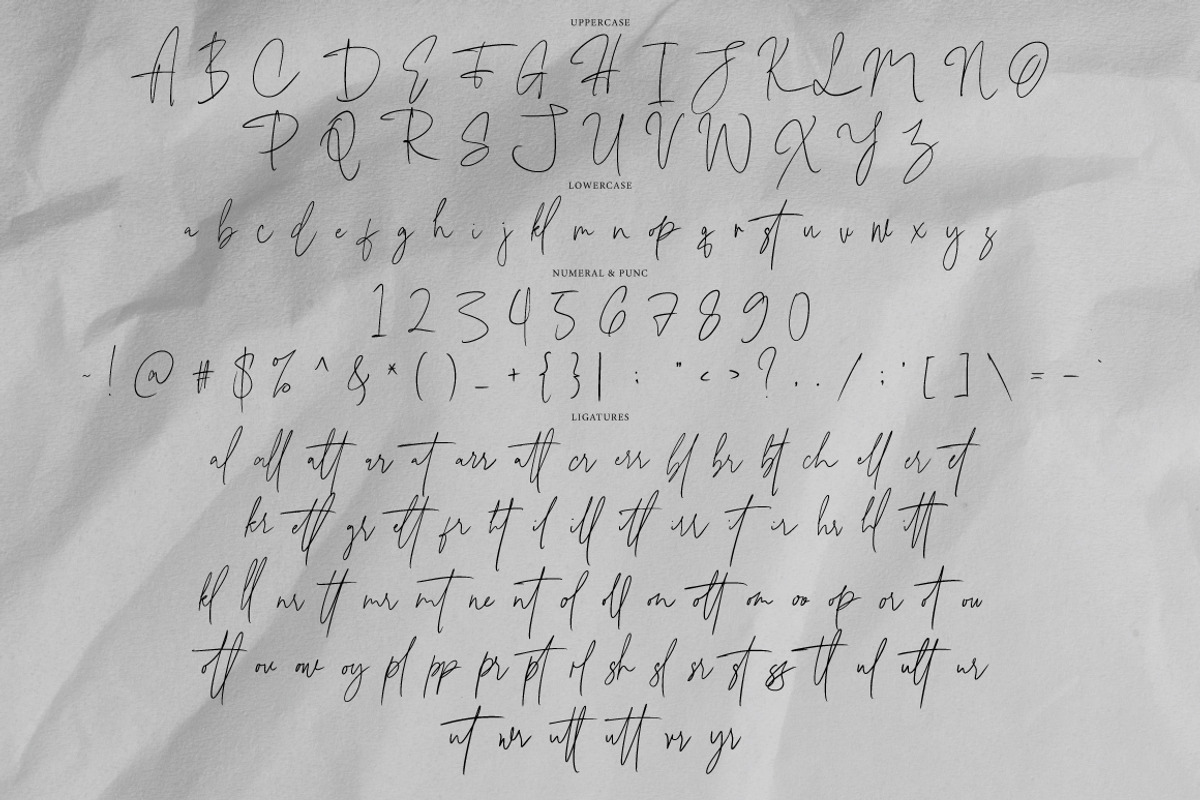 UPPERCASE
A B C D E F G H I J K L M N O
P Q R S T U V W X Y Z
LOWERCASE
a b c d e f g h i j k l m n o p q r s t u v w x y z
NUMERAL & PUNC
1 2 3 4 5 6 7 8 9 0
~ ! @ # $ % ^ & * ( ) _ + { } | : " < > ? , . / ; ' [ ] \ = - `
LIGATURES
al all att ar at arr atl cr err bl br bt ch ell er et
kr etl gr ett fr ht il ill itl irr it ir hr hl itt
kl ll nr tt mr mt ne nt ol oll on ott om oo op or ot ou
otl ov ow oy pl pp pr pt rl sh sl sr st ss tl ul ult ur
ut wr utl utt vr yr